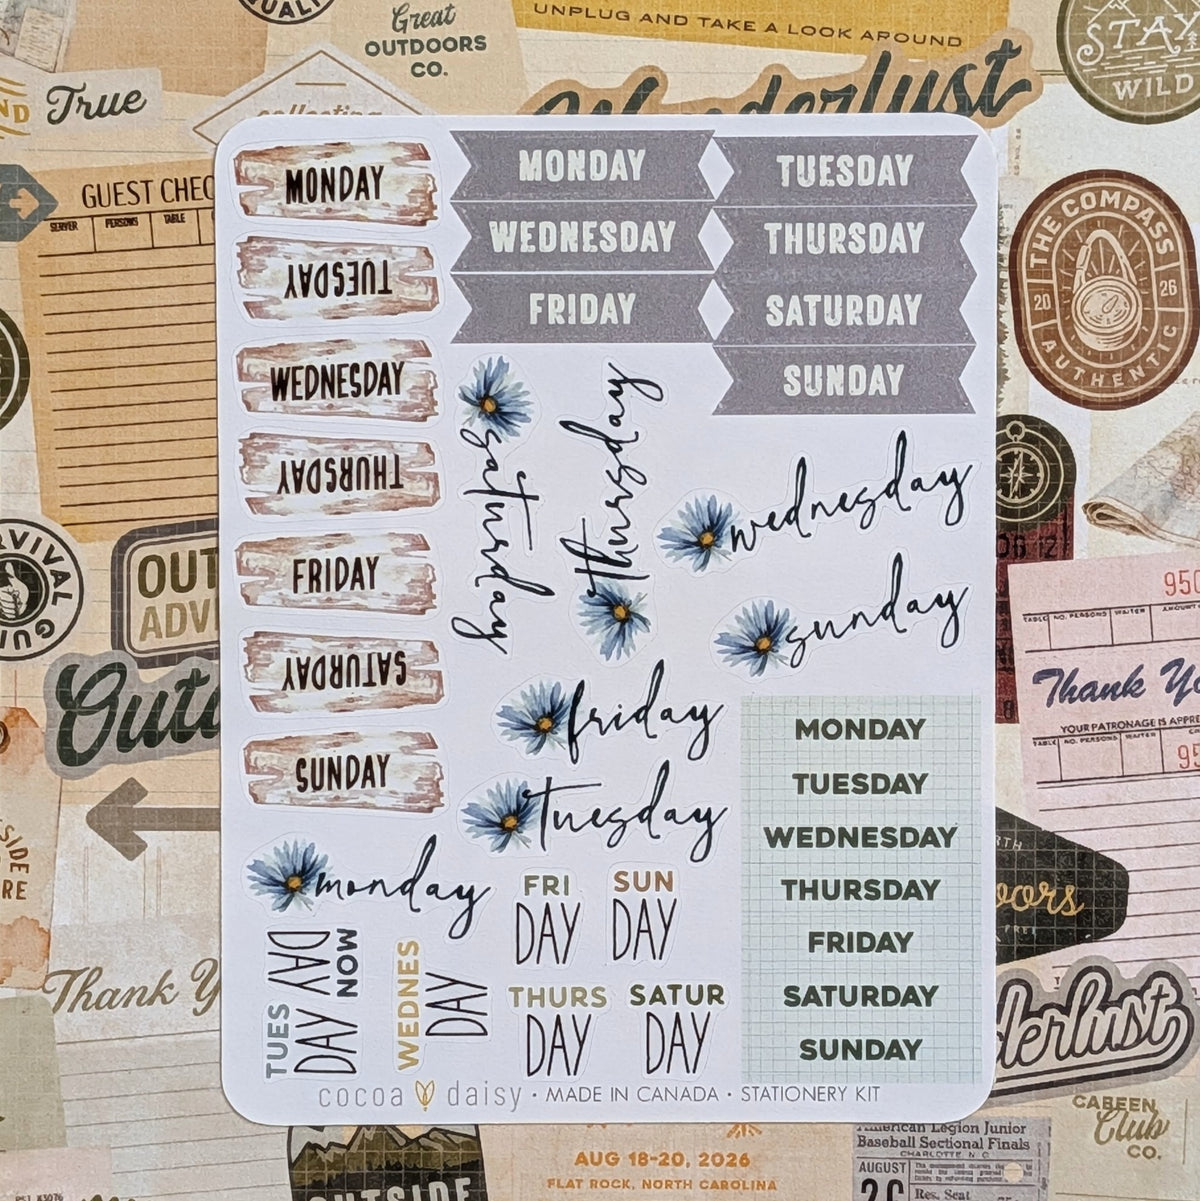 QUALI
Great
OUTDOORS
CO.
UNPLUG AND TAKE A LOOK AROUND
STAY
WILD
True
collecting
Wanderlust
GUEST CHEC
SERVER PERSONS TABLE
THE COMPASS
20 26
AUTHENTIC
MONDAY
TUESDAY
WEDNESDAY
THURSDAY
FRIDAY
SATURDAY
SUNDAY
MONDAY
TUESDAY
WEDNESDAY
THURSDAY
FRIDAY
SATURDAY
SUNDAY
saturday
thursday
wednesday
sunday
friday
tuesday
monday
MONDAY
TUESDAY
WEDNESDAY
THURSDAY
FRIDAY
SATURDAY
SUNDAY
FRI
DAY
SUN
DAY
THURS
DAY
SATUR
DAY
TUES
DAY
NOW
DAY
WEDNES
DAY
cocoa daisy • MADE IN CANADA • STATIONERY KIT
RVIVAL
GUI
OUT
ADV
Outd
SIDE
RE
Thank Y
06 12
950
TABLE NO. PERSONS WAITER AMOUNT
Thank Yo
YOUR PATRONAGE IS APPRE
TABLE NO. PERSONS WAITER
95
RTH
oors
derlust
CABEEN
Club
CO.
American Legion Junior
Baseball Sectional Finals
CHARLOTTE N C
AUGUST
Res. Seat
AUG 18-20, 2026
FLAT ROCK, NORTH CAROLINA
OUTSIDE